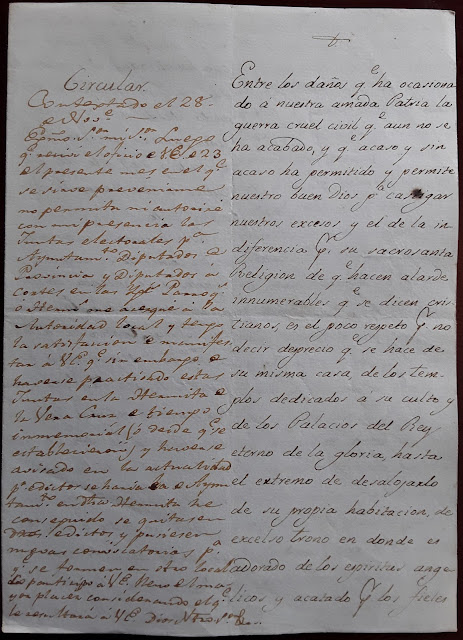 Circular.
Contextado el 28
Exmo. Sor. mi Sor. Luego
qe. recivi el oficio de V.E. de 23
el presente mes en el qe.
se sirve prevenirme
no permita ni autorice
con mi presencia las
Juntas electorales pa.
Ayuntamtos. Diputados a
Provincia y Diputados a
cortes en las
me acerqué a la
Autoridad local y tengo
la satisfaccion de manifes
tar á V.E. qe. sin embargo de
haverse practicado estas
Juntas en la Hermita de
la Vera Cruz de tiempo
inmemorial (ó desde qe. se
establecieron) y haverse
avisado en la actualidad
pr. edictos se haria la de Ayun
tamto. en dha. Hermita he
conseguido se quitasen
edictos, y pusiesen
nuevas convocatorias pa.
qe. se tuviesen en otro local
Lo participo á V.E. lleno del mayor
placer considerando el qe.
le resultará á V.E. Dios Ntro. Sor. &.
Entre los daños qe. ha ocasiona
do á nuestra amada Patria la
guerra cruel civil qe. aun no se
ha acabado, y qe. acaso y sin
acaso ha permitido y permite
nuestro buen Dios pa. castigar
nuestros excesos y el de la in
diferencia pr. su sacrosanta
Religion de qe. hacen alarde
innumerables qe. se dicen cris
tianos, en el poco respeto pr. no
decir deprecio qe. se hace de
su misma casa, de los tem
plos dedicados á su culto y
de los Palacios del Rey
eterno de la gloria, hasta
el extremo de desalojarlo
de su propia habitacion, de
excelso trono en donde es
adorado de los espiritus ange
licos y acatado pr. los fieles